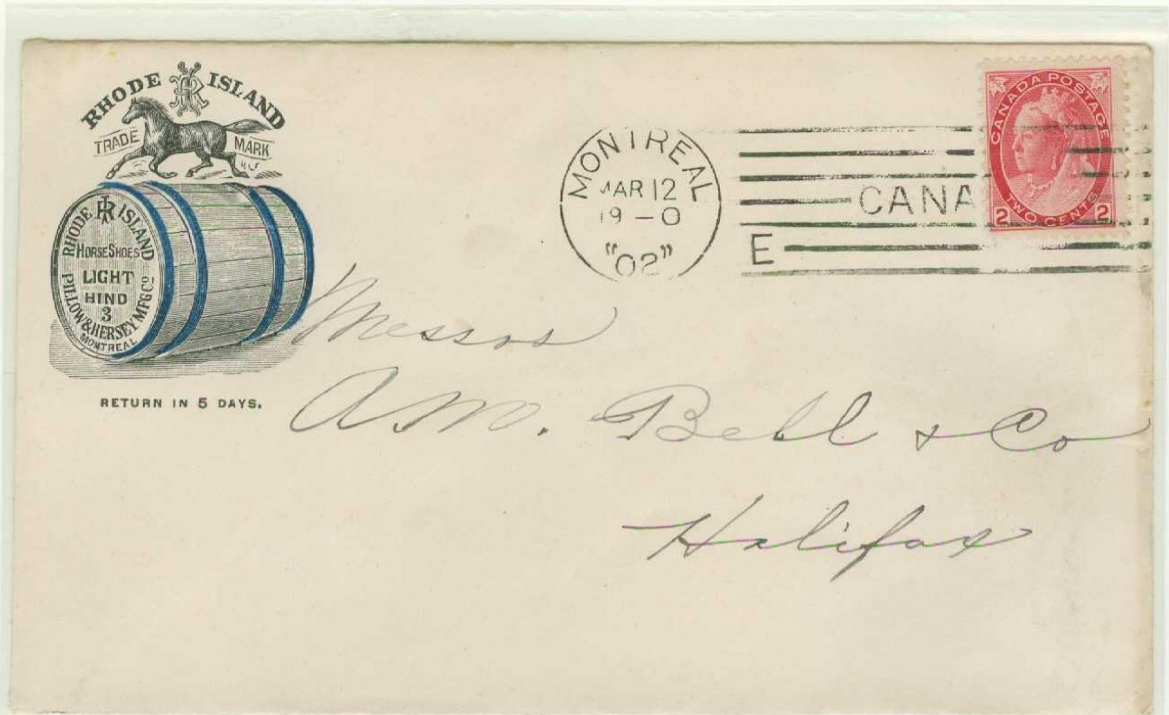 RHODE ISLAND
TRADE MARK
RHODE ISLAND
HORSE SHOES
LIGHT
HIND
3
PILLOW & HERSEY MFG Co
MONTREAL
RETURN IN 5 DAYS.
MONTREAL
MAR 12
19 – 0
"02"
CANA
E
CANADA POSTAGE
2 TWO CENTS 2
Messrs
A M. Bell & Co
Halifax